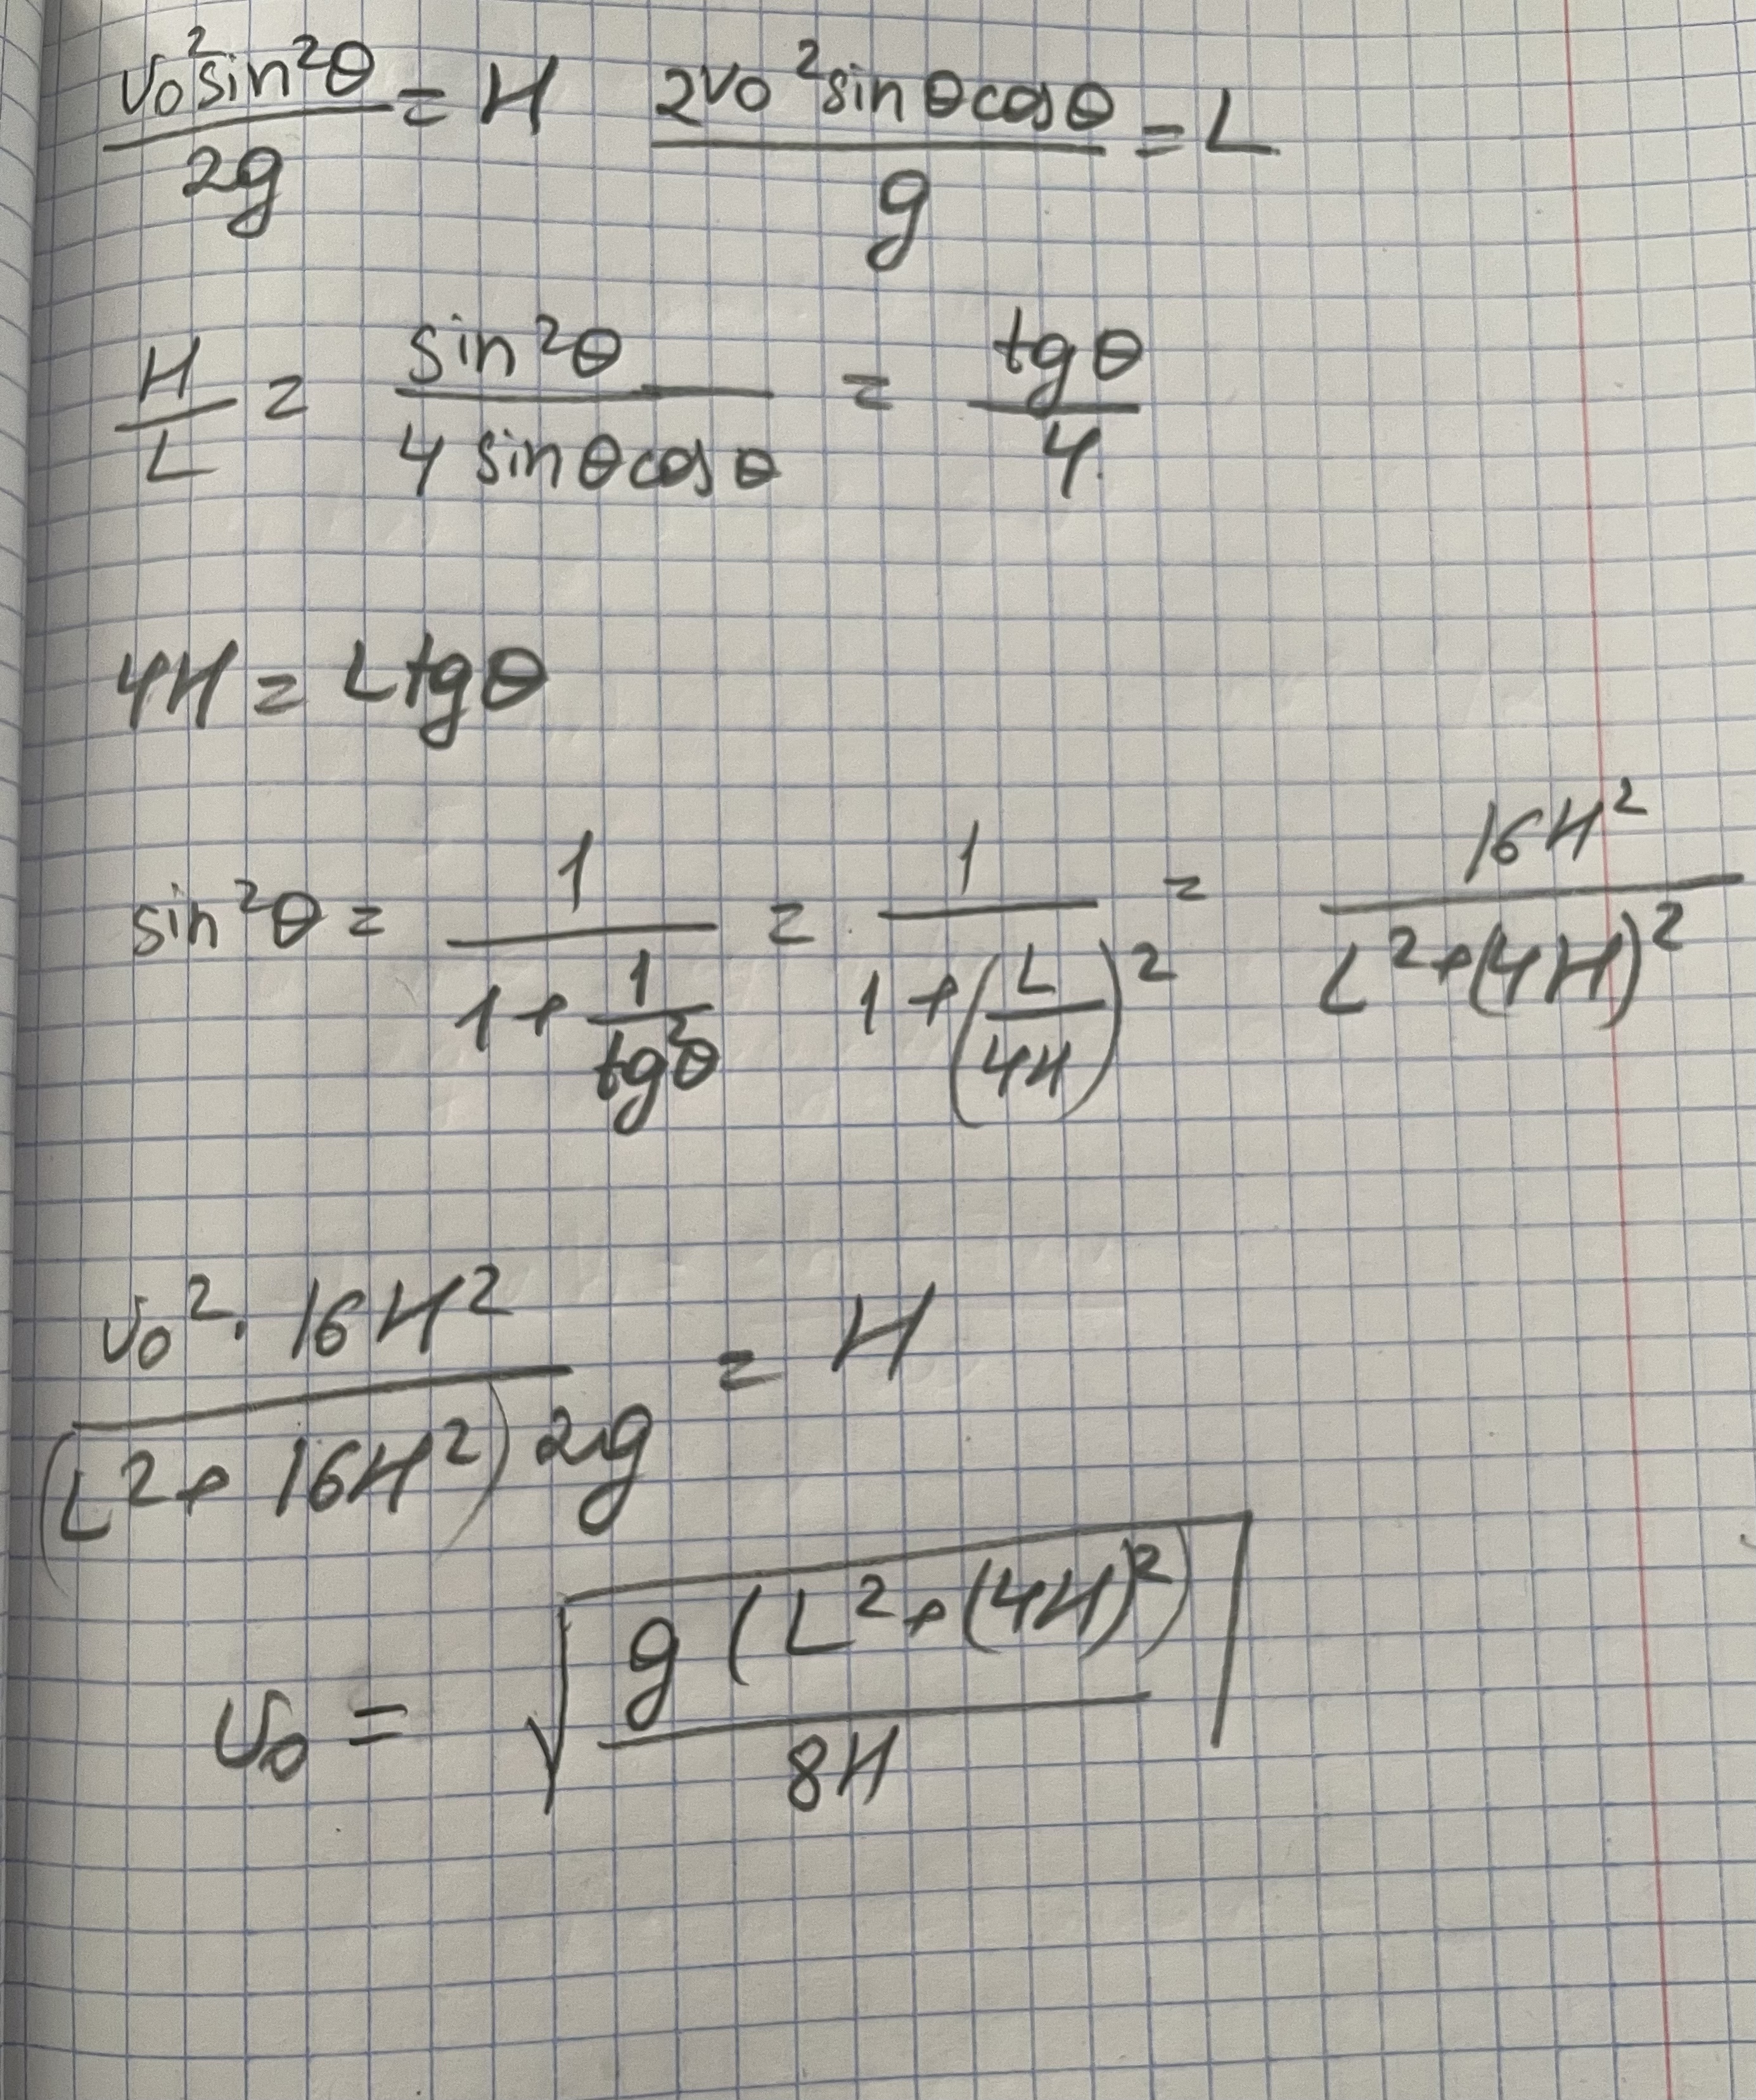 v₀²sin²θ/2g = H   2v₀²sinθcosθ/g = L
H/L = sin²θ/(4 sinθcosθ) = tgθ/4
4H = L tgθ
sin²θ = 1/(1+1/tg²θ) = 1/(1+(L/4H)²) = 16H²/(L²+(4H)²)
v₀²·16H²/((L²+16H²)2g) = H
v₀ = √(g(L²+(4H)²)/8H)